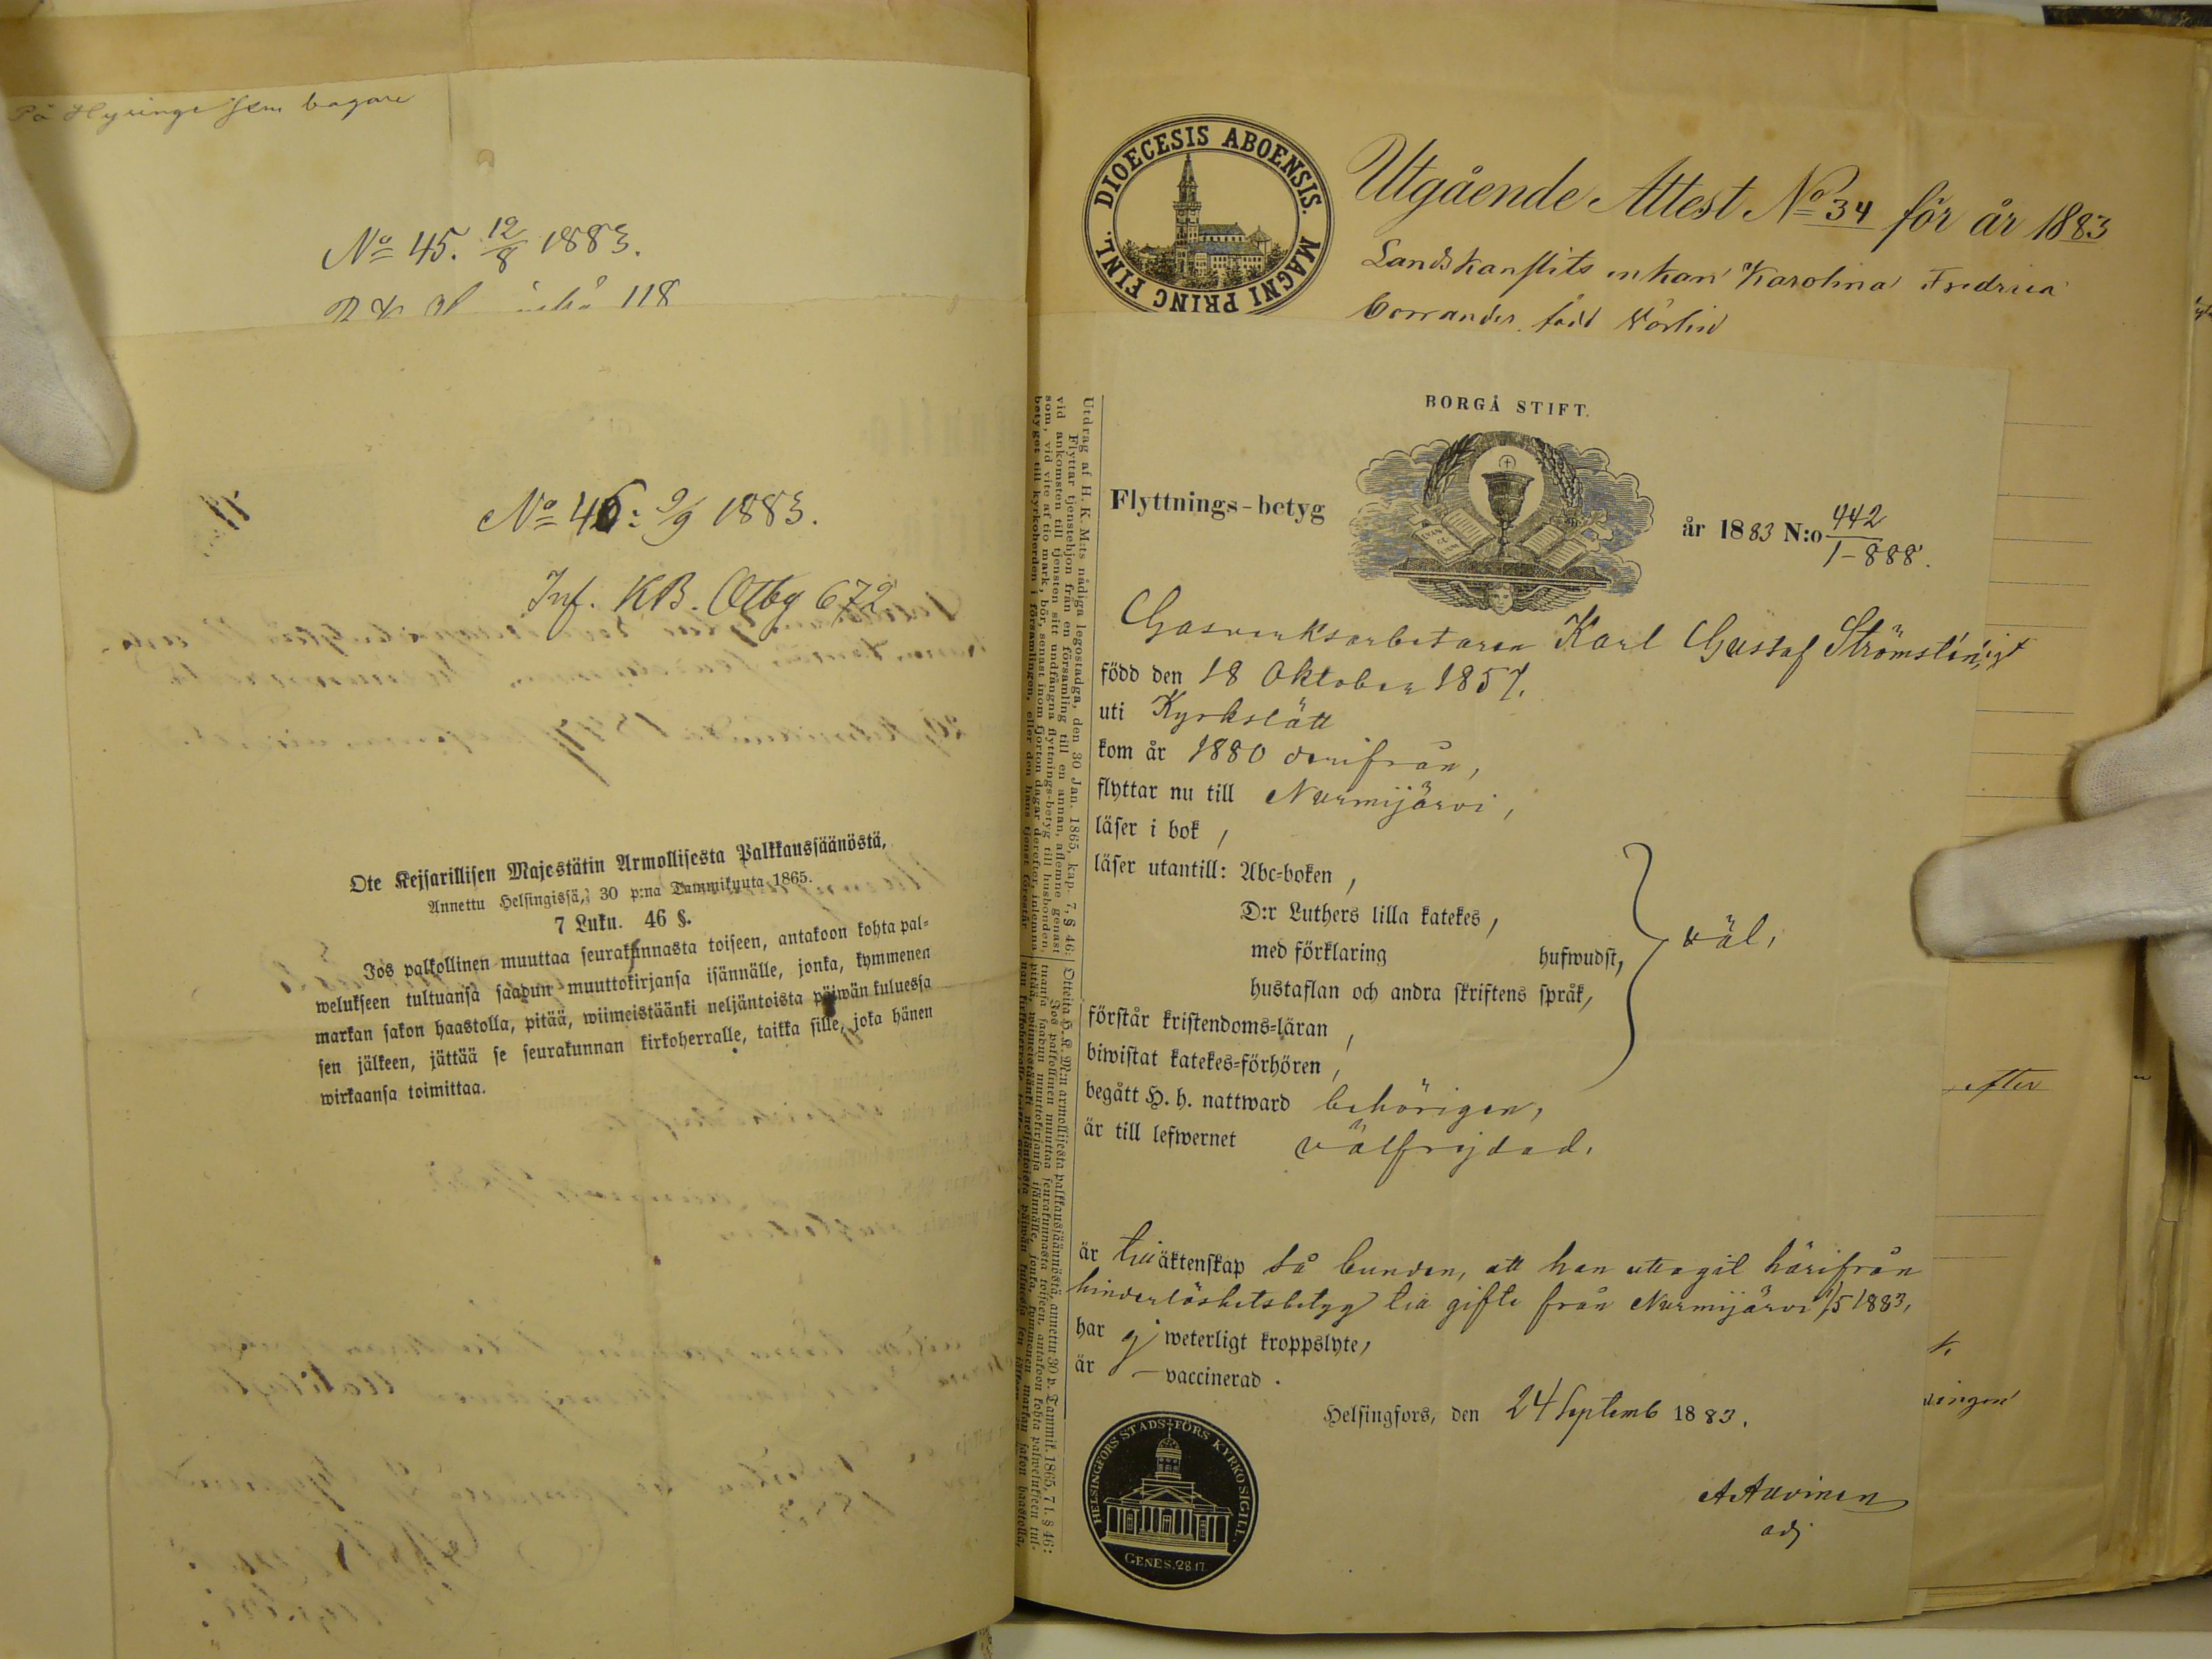 På Hyvinge som bagare
No 45. 12/8 1883.
118
No 46: 9/9 1883.
Inf. KB. Otby 672
Ote Keisarillisen Majestätin Armollisesta Palkkaussäänöstä,
Annettu Helsingissä, 30 p:na Tammikuuta 1865.
7 Luku. 46 §.
Jos palkollinen muuttaa seurakunnasta toiseen, antakoon kohta pal-
welukseen tultuansa saadun muuttokirjansa isännälle, jonka, kymmenen
markan sakon haastolla, pitää, wiimeistäänki neljäntoista päiwän kuluessa
sen jälkeen, jättää se seurakunnan kirkoherralle, taikka sille, joka hänen
wirkaansa toimittaa.
DIOECESIS ABOENSIS. MAGNI PRINC FINL.
Utgående Attest No 34 för år 1883
Landskanslits enkan Karolina Fredrica
född
BORGÅ STIFT.
Flyttnings-betyg
år 1883 N:o 442
1-888.
Gasverksarbetaren Karl Gustaf Strömsten,
född den 18 Oktober 1857.
uti Kyrkslätt
kom år 1880 derifrån,
flyttar nu till Nurmijärvi,
läser i bok,
läser utantill: Abc-boken,
D:r Luthers lilla katekes,
med förklaring hufwudst,
hustaflan och andra skriftens språk,
väl,
förstår kristendoms-läran,
biwistat katekes-förhören,
begått H. h. nattward behörigen,
är till lefwernet välfrejdad.
är till äktenskap så bunden, att han uttagit härifrån
hinderlöshetsbetyg till gifte från Nurmijärvi 1/5 1883,
har ej weterligt kroppslyte,
är — vaccinerad.
Helsingfors, den 24 Septemb 1883.
A Auvinen
adj
HELSINGFORS STADS FÖRS KYRKOSIGILL.
GENES. 28.17.
Utdrag af H. K. M:ts nådiga legostadga, den 30 Jan. 1865, kap. 7, § 46:
Flyttar tjenstehjon från en församling till en annan, aflemne genast
vid ankomsten till tjensten sitt undfångna flyttnings-betyg till husbonden,
som, vid vite af tio mark, bör, senast inom fjorton dagar derefter, inlemna
betyget till kyrkoherden i församlingen, eller den hans tjenst förestår
Otteita H. K. M:n armollisesta palkkaussäännöstä, annettu 30 p. Tammik. 1865, 7 l. § 46:
Jos palkollinen muuttaa seurakunnasta toiseen, antakoon kohta palwelukseen tul-
tuansa saadun muuttokirjansa isännälle, jonka, kymmenen markan sakon haastolla,
pitää, wiimeistäänki neljäntoista päiwän kuluessa sen jälkeen
efter